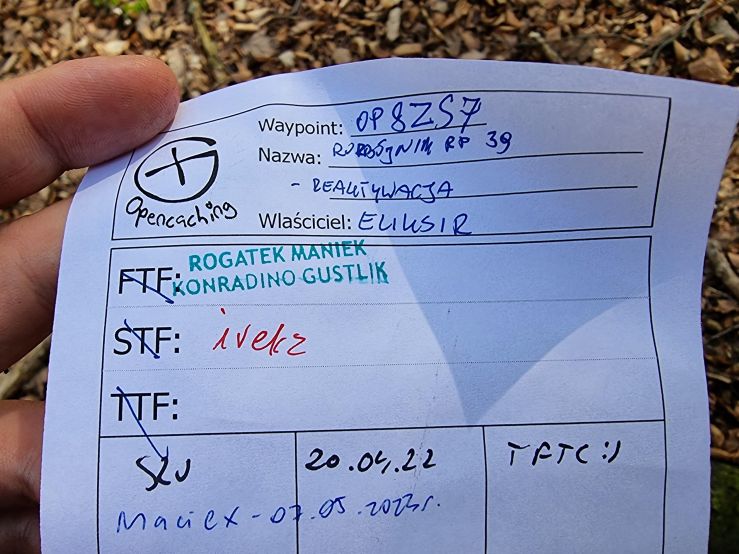 Opencaching
Waypoint: OP8ZS7
Nazwa: ROZBÓJNIK RP 39
- REAKTYWACJA
Właściciel: ELIKSIR
FTF: ROGATEK MANIEK
KONRADINO GUSTLIK
STF: ivekz
TTF:
SZU 20.04.22 TFTC :)
Maciex - 07.05.2023r.